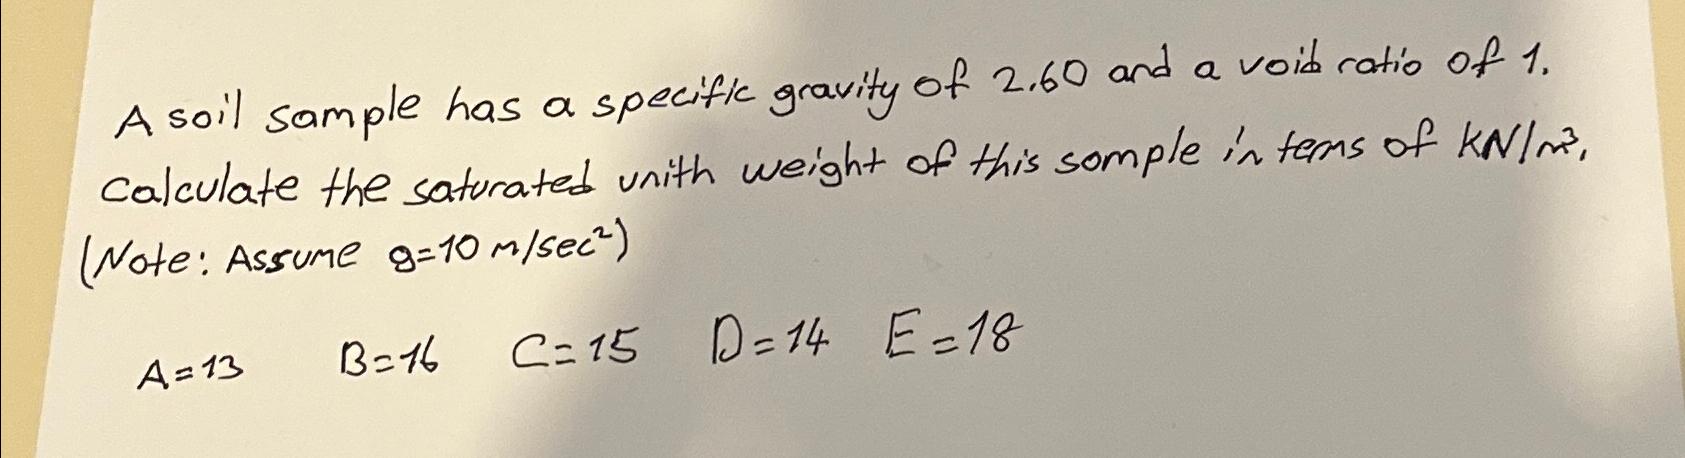 A soil sample has a specific gravity of 2.60 and a void ratio of 1.
Calculate the saturated unith weight of this somple in tems of kN/m³.
(Note: Assume g=10 m/sec²)
A=13 B=16 C=15 D=14 E=18